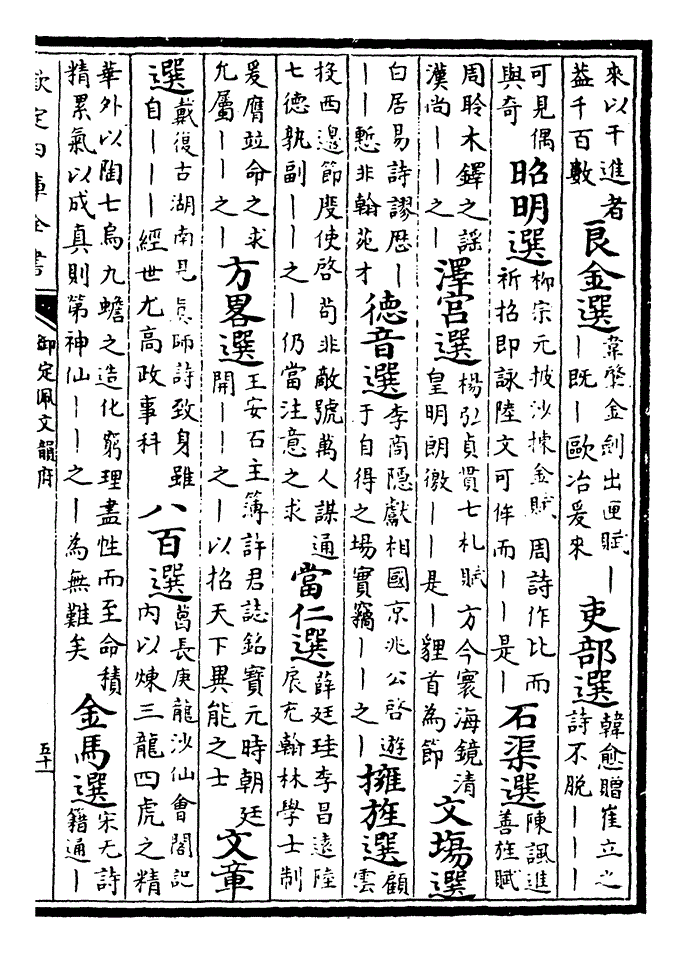 來以干進者益千百數 良金選 韋縈金劍出匣賦｜｜既｜歐冶爰来 吏部選 韓愈贈崔立之詩不脫｜｜｜
可見偶與奇 昭明選 柳宗元披沙揀金賦周詩作比而祈招即詠陸文可侔而｜｜是｜ 石渠選 陳諷進善旌賦
周聆木鐸之謡漢尚｜｜之｜ 澤宫選 楊弘貞貫七札賦方今寰海鏡清皇明朗徹｜｜是｜貍首為節 文場選
白居易詩謬厯｜｜｜慙非翰苑才 徳音選 李商隱獻相國京兆公啓遊于自得之場實竊｜｜之｜ 擁旌選 顧雲
投西邊節度使啓苟非敵號萬人謀通七德孰副｜｜之｜仍當注意之求 當仁選 薛廷珪李昌遠陸扆充翰林學士制
爰膺竝命之求允屬｜｜之｜ 方畧選 王安石主簿許君誌銘寶元時朝廷開｜｜之｜以招天下異能之士 文章
選 戴復古湖南見真師詩致身雖自｜｜｜經世尤高政事科 八百選 葛長庚龍沙仙會閣記内以煉三龍四虎之精
華外以陶七烏九蟾之造化窮理盡性而至命積精累氣以成真則第神仙｜｜之｜為無難矣 金馬選 宋无詩籍通｜
欽定四庫全書 御定佩文韻府 五十